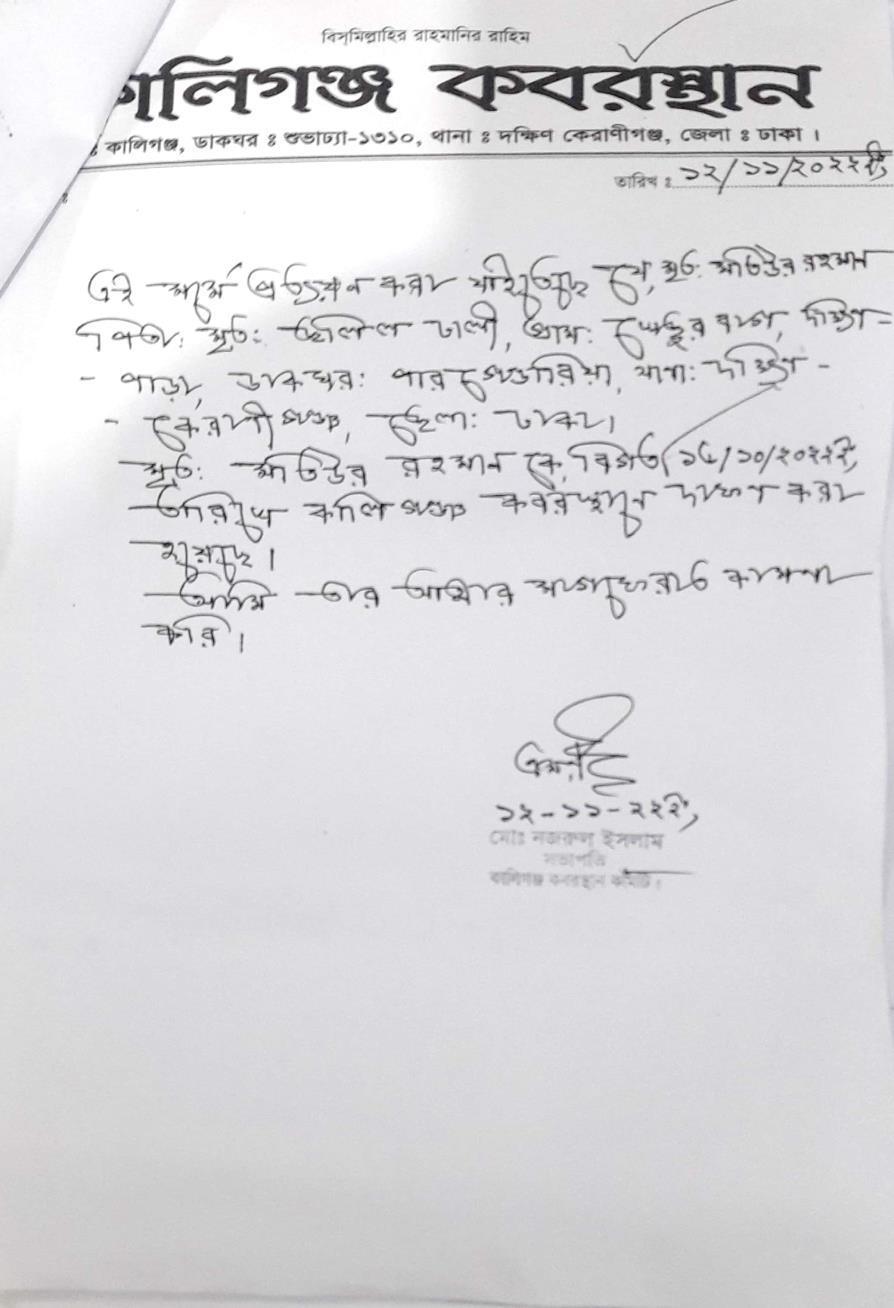 বিস্‌মিল্লাহির রাহমানির রাহিম
লিগঞ্জ কবরস্থান
ঃ কালিগঞ্জ, ডাকঘর ঃ শুভাঢ্যা-১৩১০, থানা ঃ দক্ষিণ কেরাণীগঞ্জ, জেলা ঃ ঢাকা ।
তারিখ ঃ ১২/১১/২০২২ইং
এই মর্মে প্রত্যয়ন করা যাইতেছে যে, মৃত: মতিউর রহমান
পিতা: মৃত: ঢালী, গ্রাম: খেজুর বাগ, দক্ষিণ =
- পাড়া, ডাকঘর: পার গেন্ডারিয়া, থানা: দক্ষিণ -
- কেরাণীগঞ্জ, জেলা: ঢাকা।
মৃত: মতিউর রহমান কে, বিগত /১০/২০২২ইং
তারিখে কালিগঞ্জ কবরস্থানে দাফন করা
হয়েছে।
আমি তার আত্মার মাগফেরাত কামনা
করি।
১২-১১-২২ইং
মোঃ নজরুল ইসলাম
সভাপতি
কালিগঞ্জ কবরস্থান কমিটি।